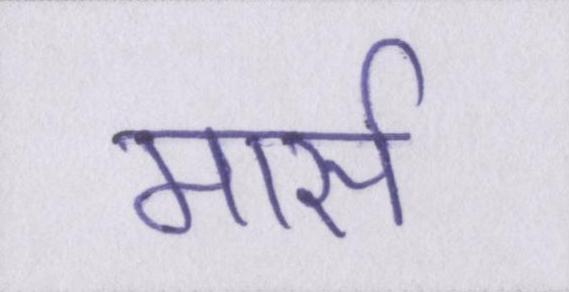 मार्स